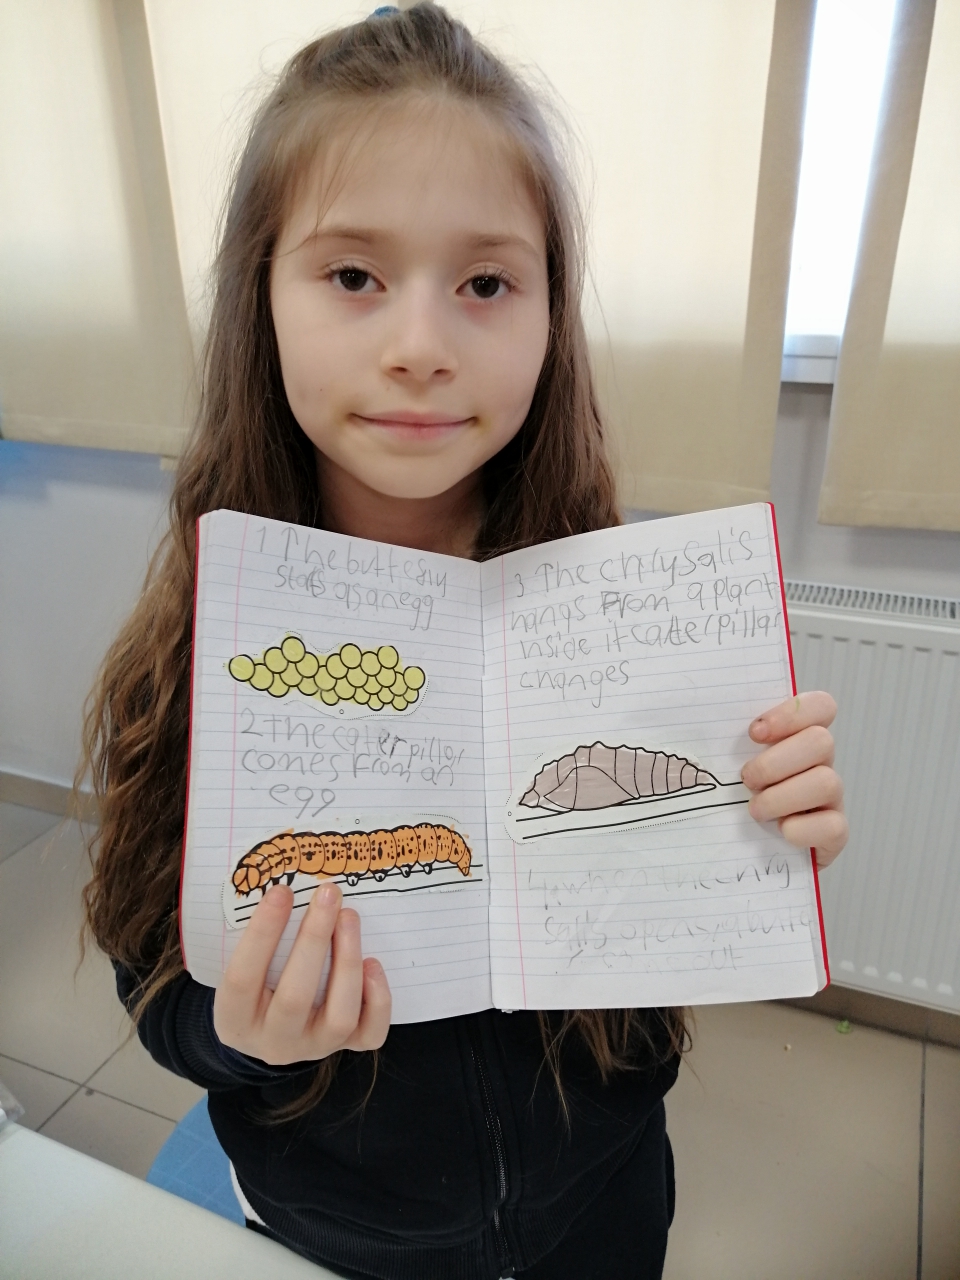 1 The butterfly
starts as an egg
2 The caterpillar
comes from an
egg
3 The chrysalis
hangs From a plant
inside it caterpillar
changes
4 when the chry
salis opens a butte
out